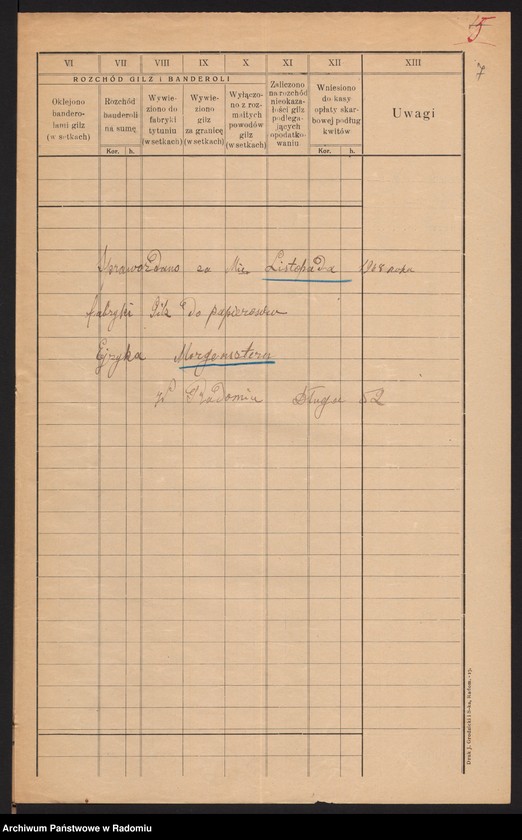 5
7
VI VII VIII IX X XI XII XIII
ROZCHÓD GILZ i BANDEROLI
Oklejono
bandero-
lami gilz
(w setkach)
Rozchód
banderoli
na sumę
Kor. h.
Wywie-
ziono do
fabryki
tytuniu
(w setkach)
Wywie-
ziono
gilz
za granicę
(w setkach)
Wyłączo-
no z roz-
maitych
powodów
gilz
(w setkach)
Zaliczono
na rozchód
nieokaza-
łości gilz
podlega-
jących
opodatko-
waniu
Wniesiono
do kasy
opłaty skar-
bowej podług
kwitów
Kor. h.
Uwagi
Sprawozdano za Mie Listopada roku
fabryki Gilz do papierosów
Morgensztern
w Radomiu Długa 52
Druk J. Grodzicki i S-ka, Radom.
Archiwum Państwowe w Radomiu